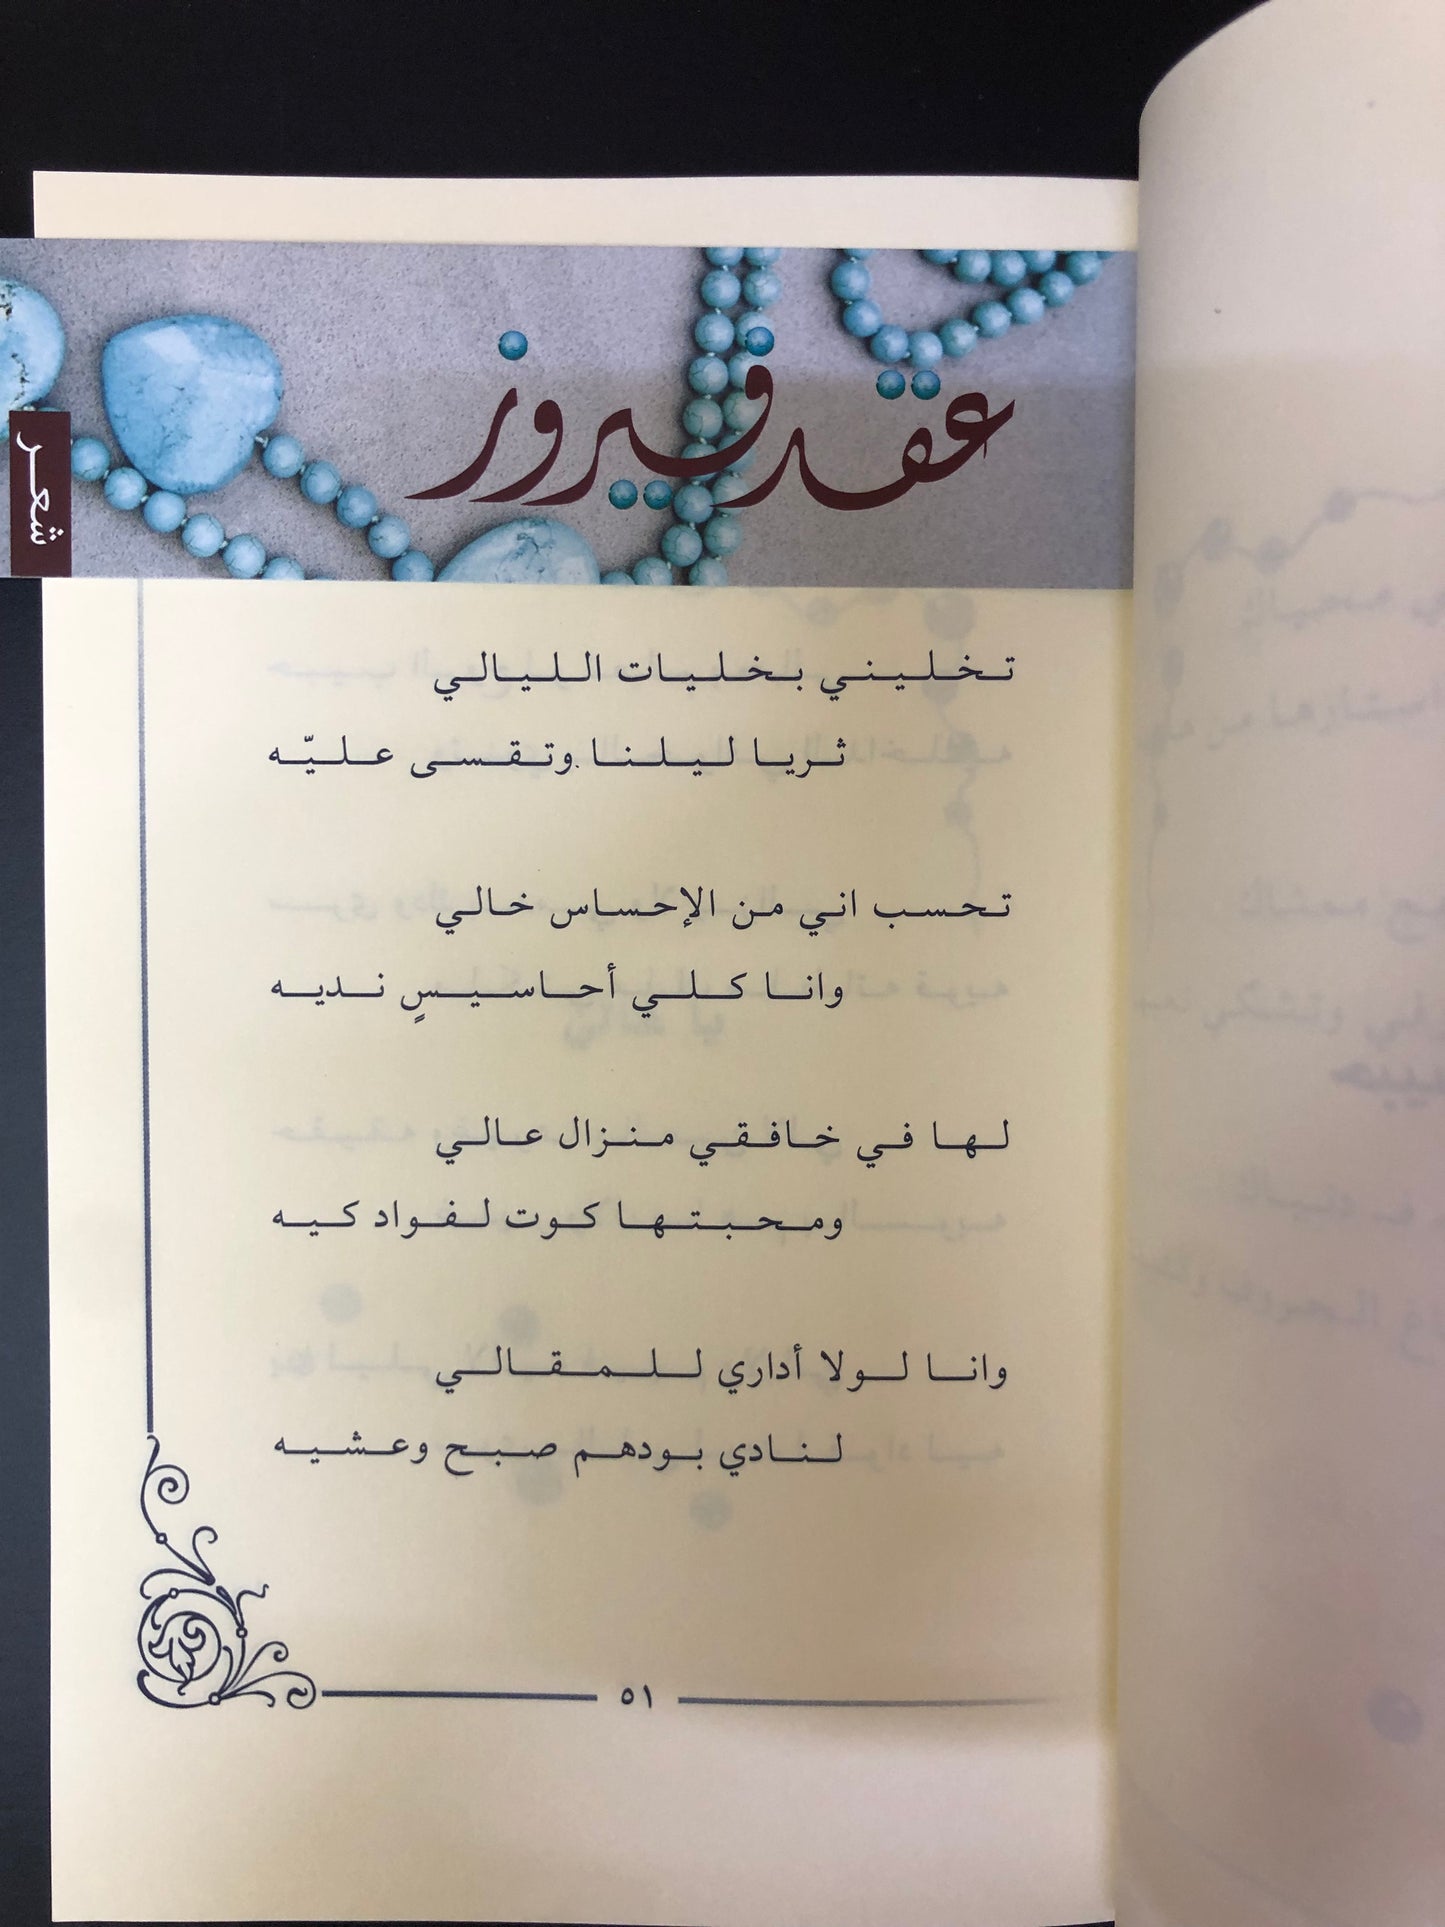 عقد فيروز
شعر
تخليني بخليات الليالي
ثريا ليلنا وتقسى عليّه
تحسب اني من الإحساس خالي
وانا كلي أحاسيسٍ نديه
لها في خافقي منزال عالي
ومحبتها كوت لفواد كيه
وانا لولا أداري للمقالي
لنادي بودهم صبح وعشيه
٥١